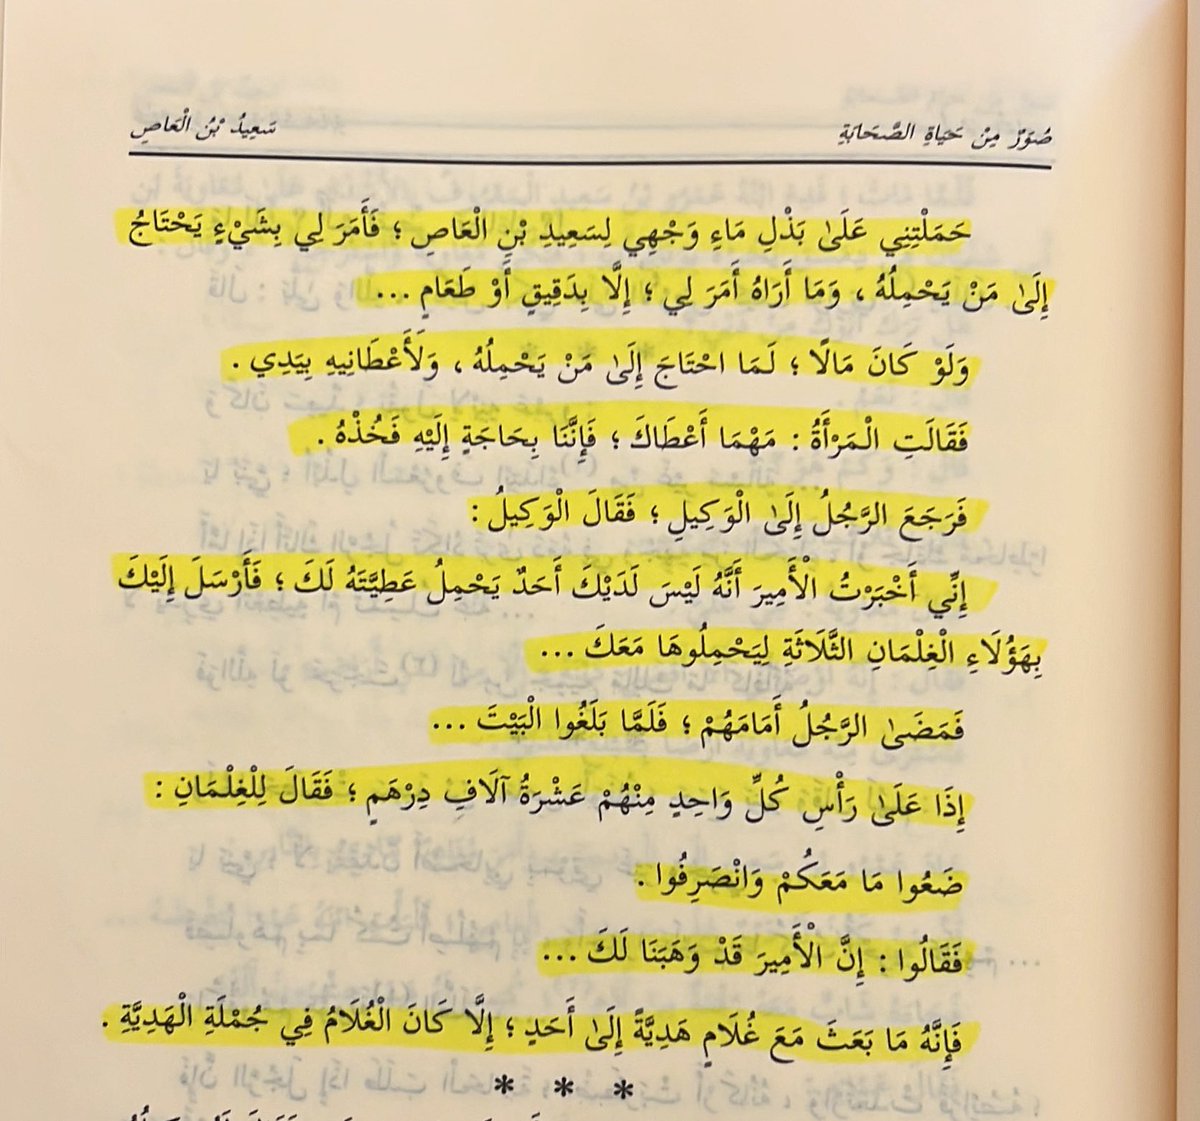 صُوَرٌ مِنْ حَيَاةِ الصَّحَابَةِ
سَعِيدُ بْنُ الْعَاصِ
حَمَلْتِنِي عَلَىٰ بَذْلِ مَاءِ وَجْهِي لِسَعِيدِ بْنِ الْعَاصِ ؛ فَأَمَرَ لِي بِشَيْءٍ يَحْتَاجُ
إِلَىٰ مَنْ يَحْمِلُهُ ، وَمَا أَرَاهُ أَمَرَ لِي ؛ إِلَّا بِدَقِيقٍ أَوْ طَعَامٍ ...
وَلَوْ كَانَ مَالًا ؛ لَمَا احْتَاجَ إِلَىٰ مَنْ يَحْمِلُهُ ، وَلَأَعْطَانِيهِ بِيَدِي .
فَقَالَتِ الْمَرْأَةُ : مَهْمَا أَعْطَاكَ ؛ فَإِنَّنَا بِحَاجَةٍ إِلَيْهِ فَخُذْهُ .
فَرَجَعَ الرَّجُلُ إِلَىٰ الْوَكِيلِ ؛ فَقَالَ الْوَكِيلُ :
إِنِّي أَخْبَرْتُ الْأَمِيرَ أَنَّهُ لَيْسَ لَدَيْكَ أَحَدٌ يَحْمِلُ عَطِيَّتَهُ لَكَ ؛ فَأَرْسَلَ إِلَيْكَ
بِهَؤُلَاءِ الْغِلْمَانِ الثَّلَاثَةِ لِيَحْمِلُوهَا مَعَكَ ...
فَمَضَىٰ الرَّجُلُ أَمَامَهُمْ ؛ فَلَمَّا بَلَغُوا الْبَيْتَ ...
إِذَا عَلَىٰ رَأْسِ كُلِّ وَاحِدٍ مِنْهُمْ عَشْرَةُ آلَافِ دِرْهَمٍ ؛ فَقَالَ لِلْغِلْمَانِ :
ضَعُوا مَا مَعَكُمْ وَانْصَرِفُوا .
فَقَالُوا : إِنَّ الْأَمِيرَ قَدْ وَهَبَنَا لَكَ ...
فَإِنَّهُ مَا بَعَثَ مَعَ غُلَامٍ هَدِيَّةً إِلَىٰ أَحَدٍ ؛ إِلَّا كَانَ الْغُلَامُ فِي جُمْلَةِ الْهَدِيَّةِ .
* * *